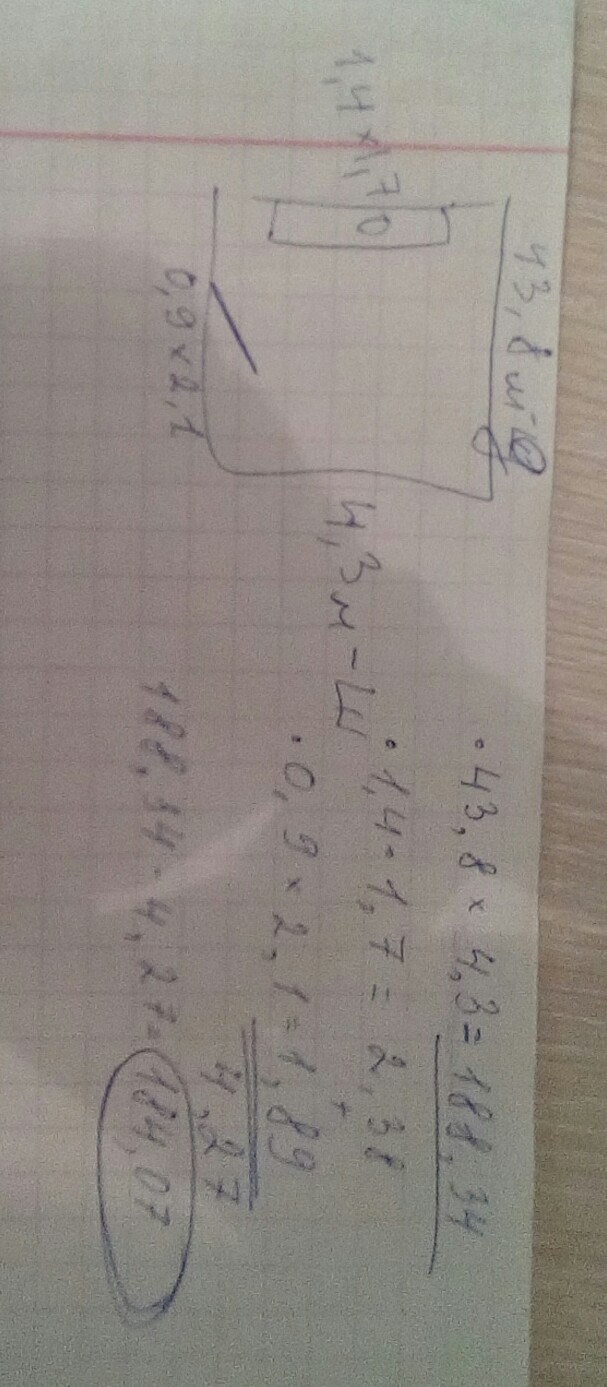 43,8 м-Д
1,4×1,70
0,9×2,1
4,3м-Ш
·43,8 × 4,3=188,34
·1,4·1,7= 2,38
+
·0,9×2,1=1,89
4,27
188,34-4,27=184,07